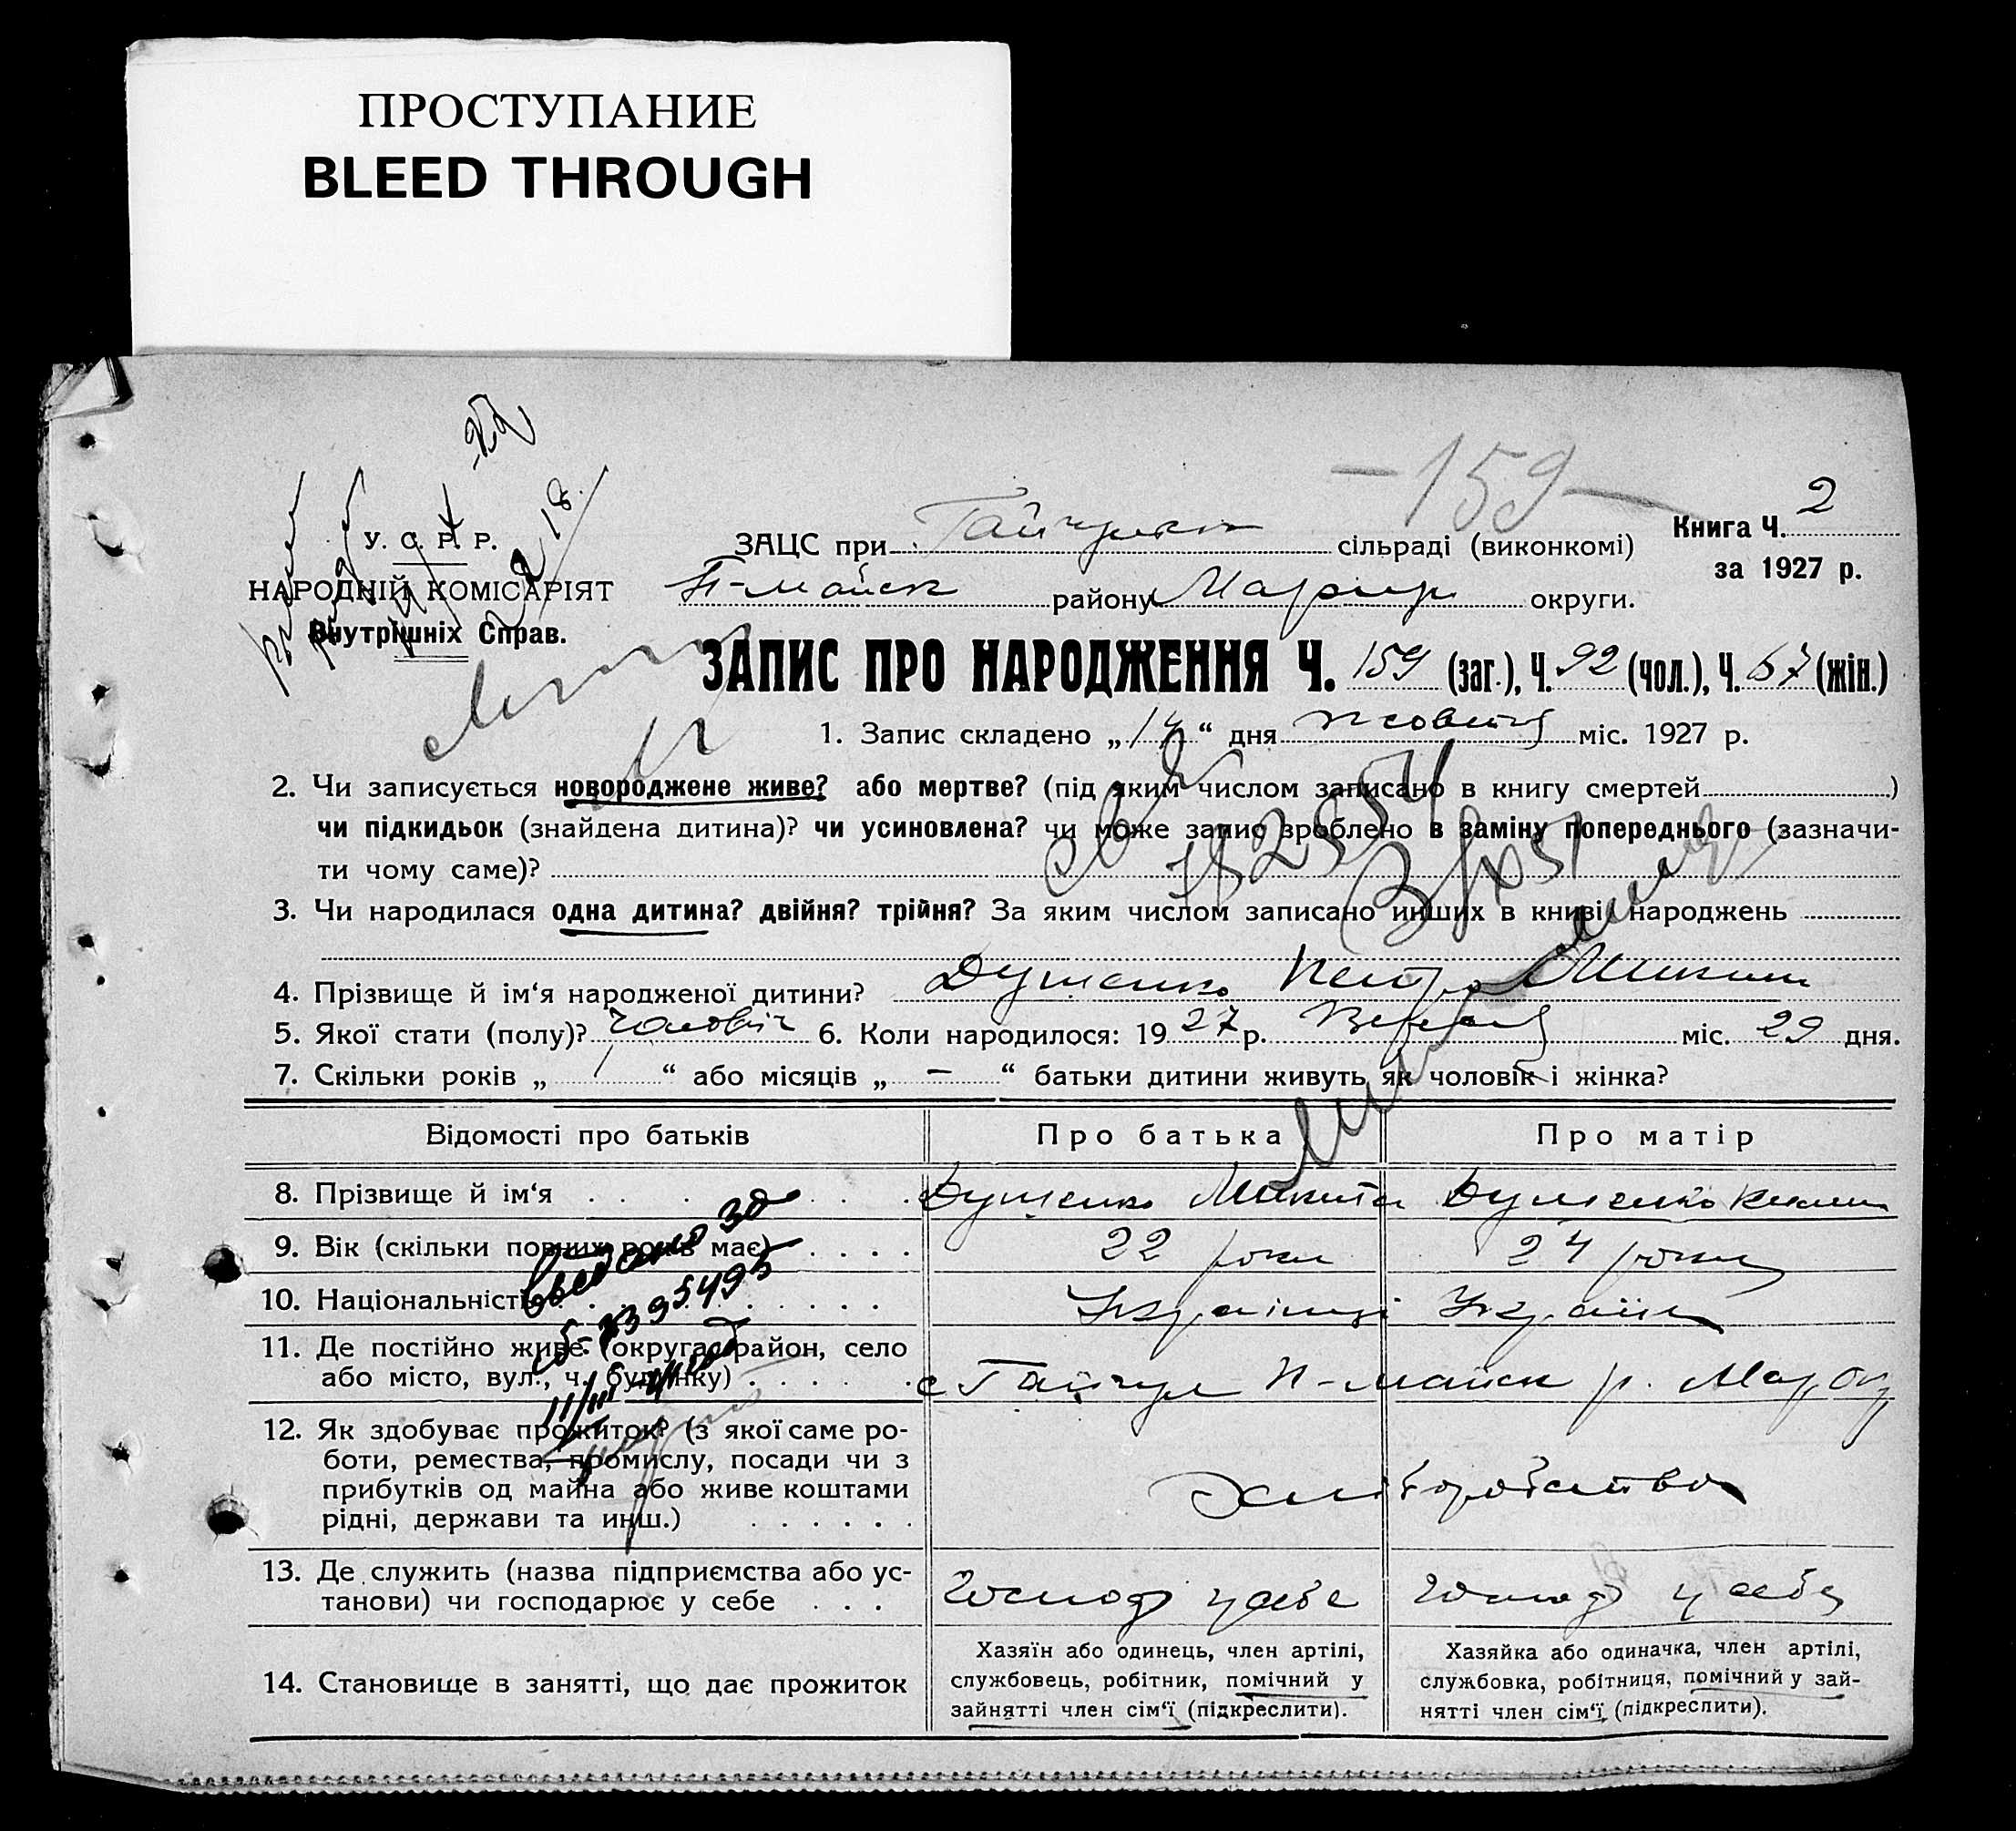 ПРОСТУПАНИЕ
BLEED THROUGH
— 159 —
Книга Ч. 2
за 1927 р.
У. С. Р. Р.
НАРОДНІЙ КОМІСАРІЯТ
Внутрішніх Справ.
ЗАЦС при Гайчульск сільраді (виконкомі)
П-Майск району Маріуп округи.
ЗАПИС ПРО НАРОДЖЕННЯ Ч. 159 (заг.), Ч. 92 (чол.), Ч. 67 (жін.)
1. Запис складено „14“ дня жовтня міс. 1927 р.
2. Чи записується новороджене живе? або мертве? (під яким числом записано в книгу смертей )
чи підкидьок (знайдена дитина)? чи усиновлена? чи може запис зроблено в заміну попереднього (зазначи-
ти чому саме)?
3. Чи народилася одна дитина? двійня? трійня? За яким числом записано инших в книзі народжень
4. Прізвище й ім‘я народженої дитини? Дущенко Петро Микит
5. Якої стати (полу)? чоловіч 6. Коли народилося: 1927 р. Вересня міс. 29 дня.
7. Скільки років „ 1 “ або місяців „ — “ батьки дитини живуть як чоловік і жінка?
Відомості про батьків Про батька Про матір
8. Прізвище й ім‘я Дущенко Микита Дущенко
9. Вік (скільки повних років має) 22 роки 24 роки
10. Національність Українці Україн
11. Де постійно живе (округа, район, село
або місто, вул., ч. будинку) с Гайчул П-Майск р. Мар Окр
12. Як здобуває прожиток? (з якої саме ро-
боти, ремества, промислу, посади чи з
прибутків од майна або живе коштами
рідні, держави та инш.) Хліборобство
13. Де служить (назва підприємства або ус-
танови) чи господарює у себе Господ у себе Господ у себе
14. Становище в занятті, що дає прожиток
Хазяїн або одинець, член артілі,
службовець, робітник, помічний у
зайнятті член сім‘ї (підкреслити).
Хазяйка або одиначка, член артілі,
службовка, робітниця, помічний у зай-
нятті член сім‘ї (підкреслити).